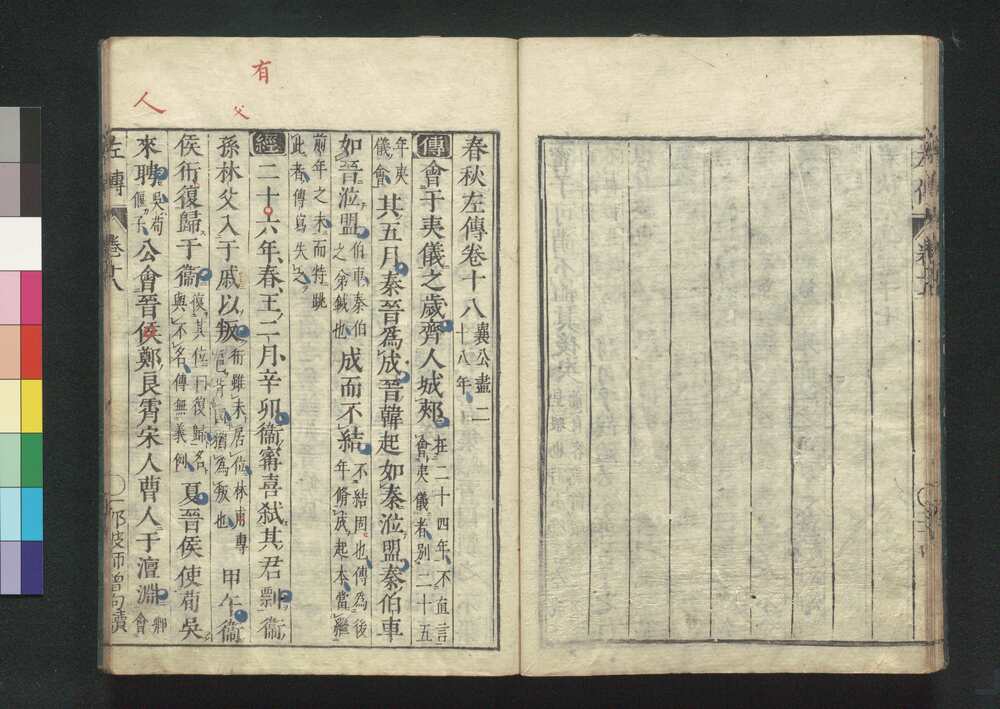 春秋左傳卷十八 襄公盡二十八年
傳 會于夷儀之歲齊人城郟 在二十四年不直言會夷儀者別二十五
年夷儀會 其五月秦晉爲成晉韓起如秦涖盟秦伯車
如晉涖盟 伯車秦伯之弟鍼也 成而不結 不結固也傳爲後年脩成起本當繼
前年之末而特跳此者傳寫失之
經 二十六年春王二月辛卯衞甯喜弑其君剽衞
孫林父入于戚以叛 衎雖未居位林父專邑背國猶爲叛也 甲午衞
侯衎復歸于衞 復其位曰復歸名與不名傳無義例 夏晉侯使荀吳
來聘 吳荀偃子 公會晉侯鄭良霄宋人曹人于澶淵 卿會
左傳 卷十八
有
父
人